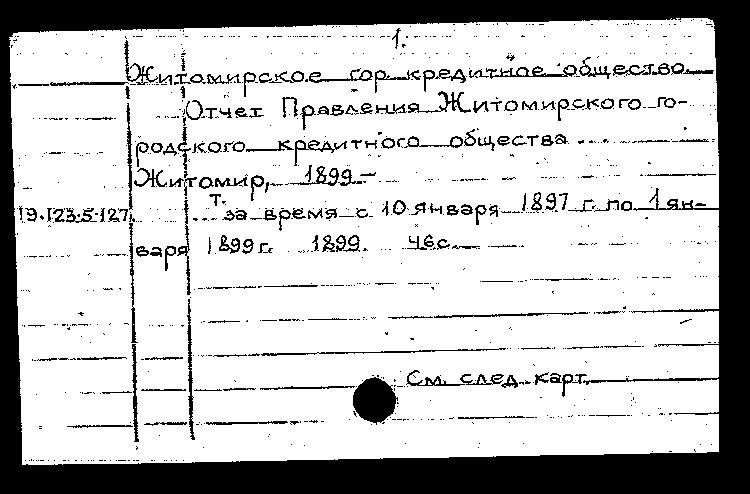 1.
Житомирское гор. кредитное общество.
Отчет Правления Житомирского го-
родского кредитного общества ...
Житомир, 1899.-
т.
19.123.5.127. ... за время с 10 января 1897 г. по 1 ян-
варя 1899 г. 1899. 46с.
См. след. карт.